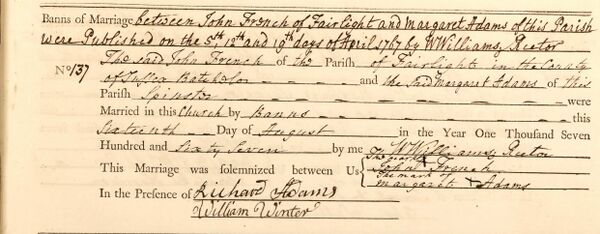 Banns of Marriage between John French of Fairlight and Margaret Adams of this Parish
were Published on the 5th 12th and 19th days of April 1767 by W Williams, Rector
No 137 The said John French of the Parish of Fairlight in the County
of Sussex Batchelor and the said Margaret Adams of this
Parish Spinster were
Married in this Church by Banns this
Sixteenth Day of August in the Year One Thousand Seven
Hundred and Sixty Seven by me W Williams, Rector
This Marriage was solemnized between Us The mark X
John French
The mark of
Margaret X Adams
In the Presence of Richard Adams
William Winter